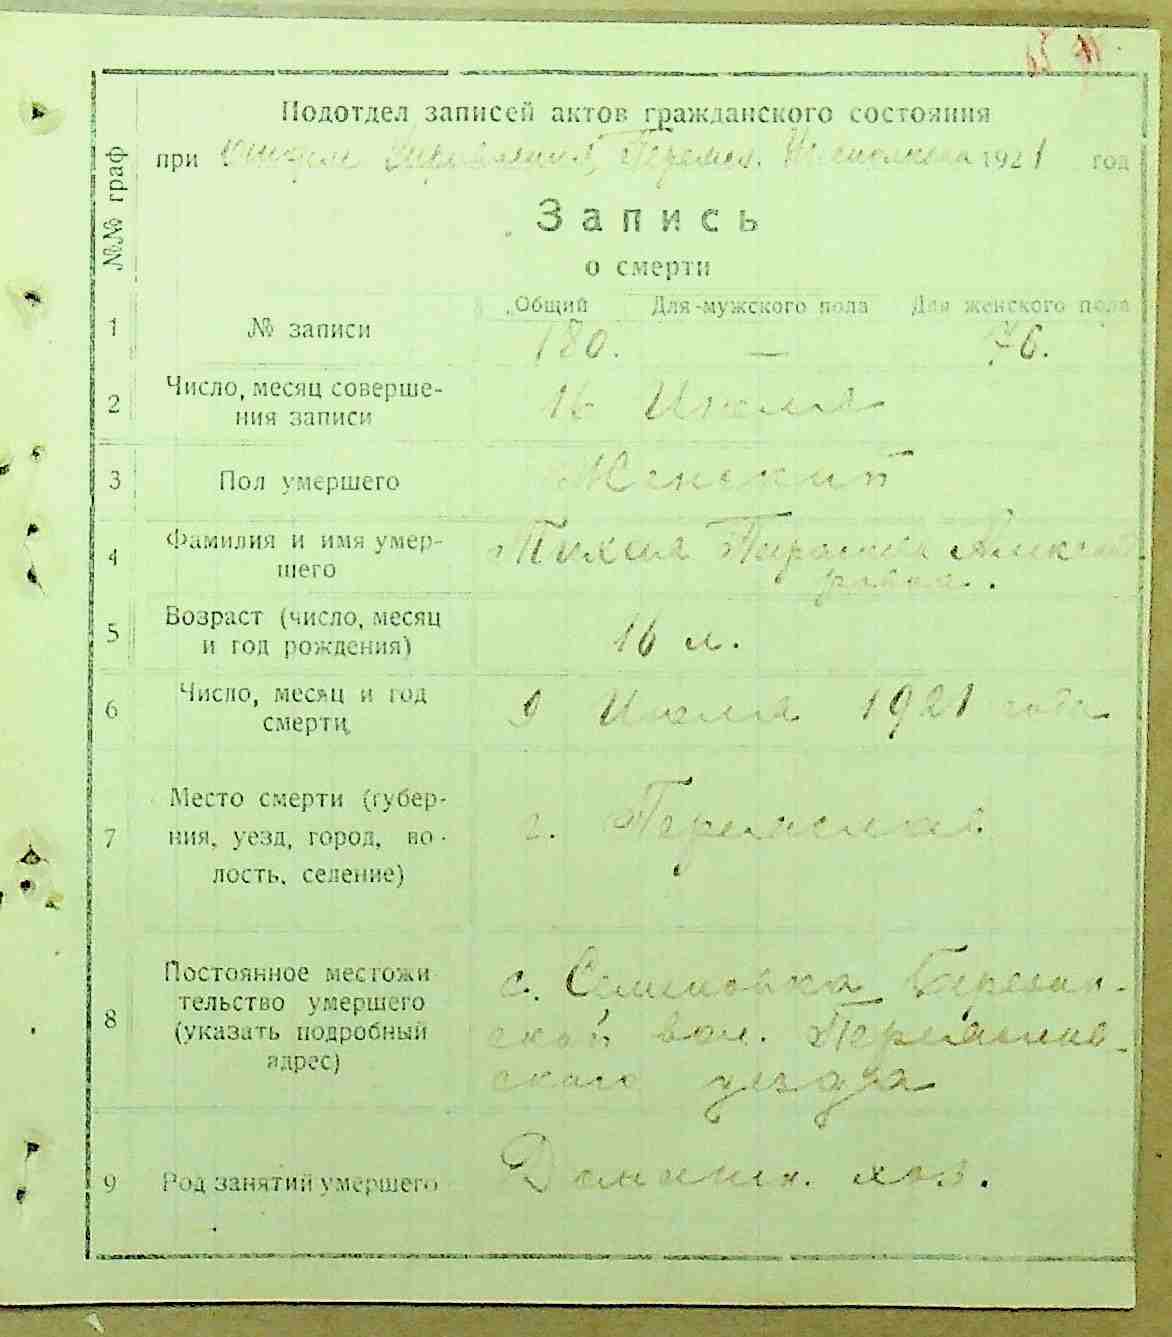 65
Подотдел записей актов гражданского состояния
№№ граф
при Отделе Управления Переясл. Исполкома 1921 год
Запись
о смерти
Общий Для мужского пола Для женского пола
1 № записи 180. — 76.
2 Число, месяц соверше-
ния записи
16 Июля
3 Пол умершего Женский
4 Фамилия и имя умер-
шего
Параска Александ-
ровна.
5 Возраст (число, месяц
и год рождения)
16 л.
6 Число, месяц и год
смерти
9 Июля 1921 года
7 Место смерти (губер-
ния, уезд, город, во-
лость, селение)
г. Переяслав.
8 Постоянное местожи
тельство умершего
(указать подробный
адрес)
с. Семеновка Березан-
ской вол. Переяслав-
ского уезда
9 Род занятий умершего Домашн. хоз.